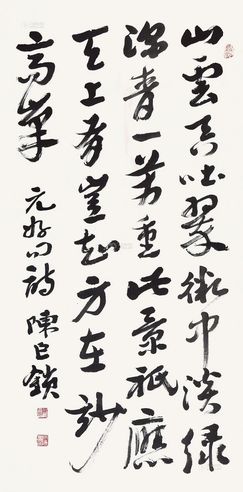 山雲吞吐翠微中淡緑
深青一萬重此景祇應
天上有豈知身在妙
高峯
元好问詩 陳巨鎖